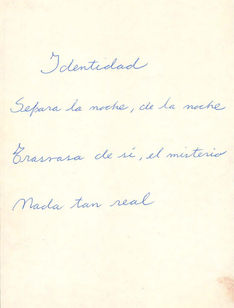 Identidad
Separa la noche, de la noche
Trasvasa de sí, el misterio
Nada tan real